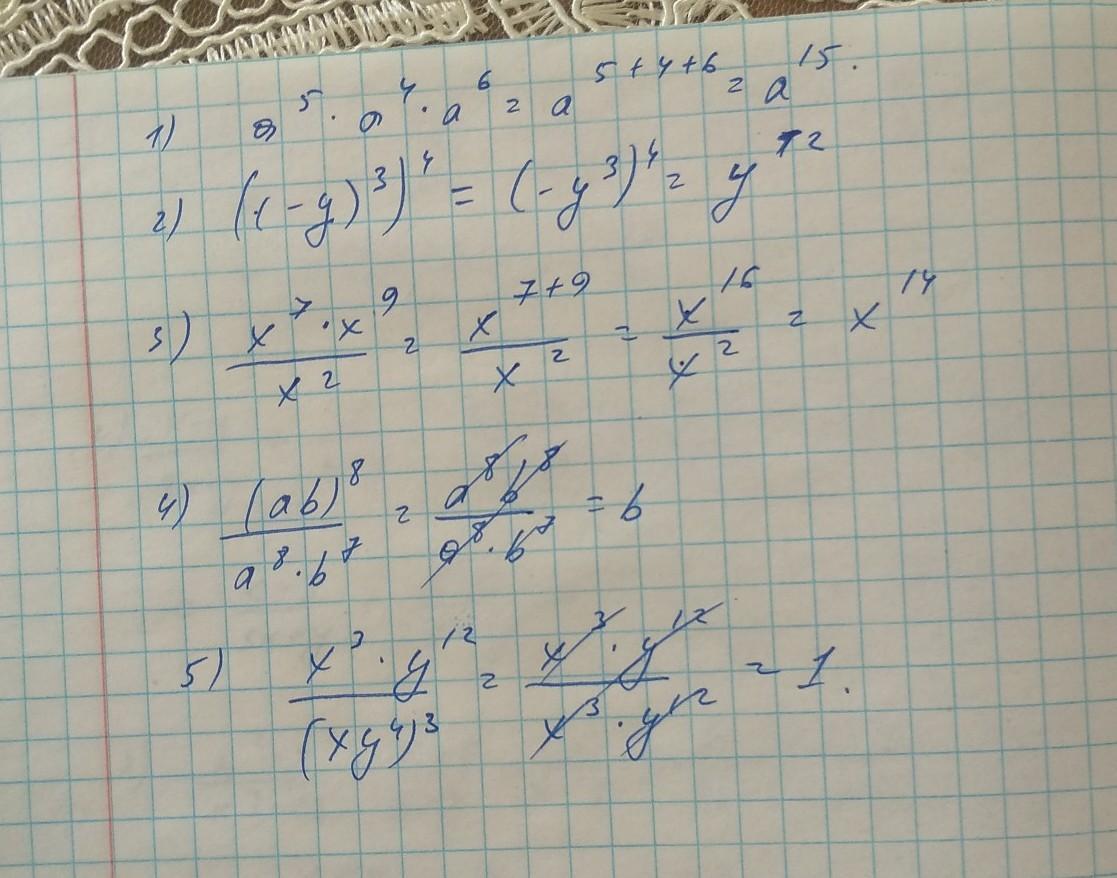 1) a⁵ · a⁴ · a⁶ = a⁵⁺⁴⁺⁶ = a¹⁵.
2) ((-y)³)⁴ = (-y³)⁴ = y¹²
3) (x⁷ · x⁹)/(x²) = (x⁷⁺⁹)/(x²) = x¹⁶/x² = x¹⁴
4) (ab)⁸/(a⁸ · b⁷) = (a⁸b⁸)/(a⁸ · b⁷) = b
5) (x³ · y¹²)/((xy⁴)³) = (x³ · y¹²)/(x³ · y¹²) = 1.